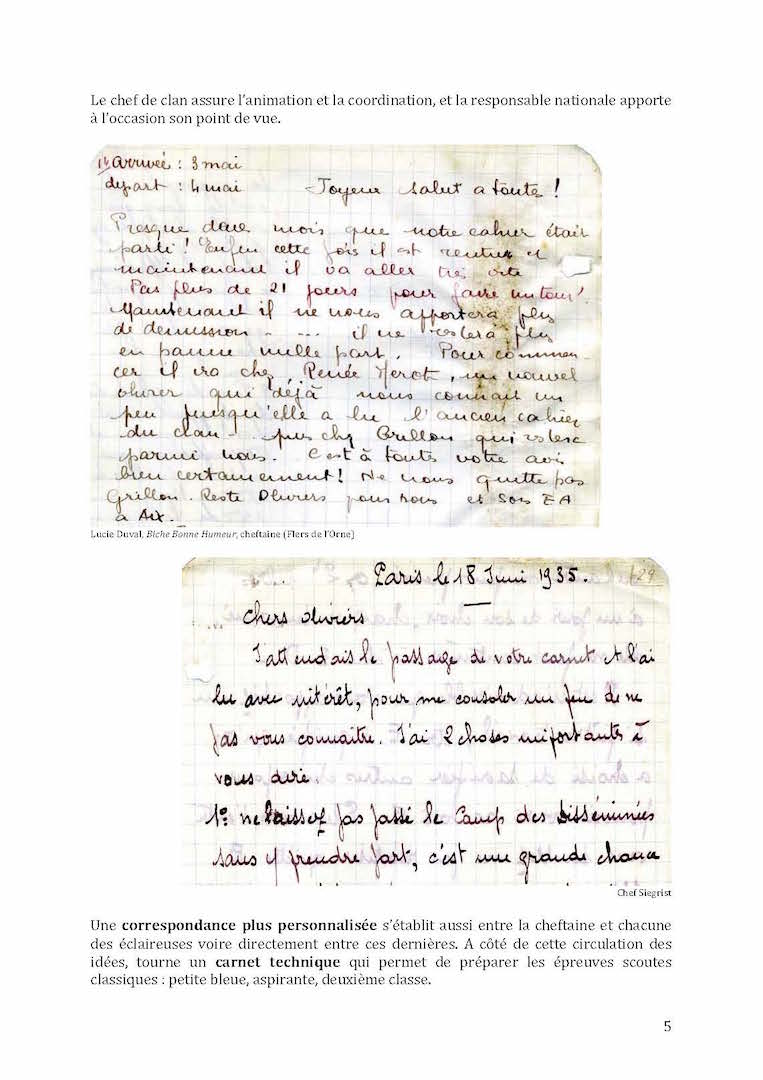 Le chef de clan assure l’animation et la coordination, et la responsable nationale apporte
à l’occasion son point de vue.
arrivée : 3 mai
départ : 4 mai Joyeux salut a toute !
Presque deux mois que notre cahier était
parti ! Enfin cette fois il est rentré et
maintenant il va aller très vite
Pas plus de 21 jours pour faire un tour !
Maintenant il ne nous apportera plus
de demission - ... il ne restera plus
en panne nulle part. Pour commen-
cer il ira chez Renée Merot, un nouvel
olivier qui déjà nous connait un
peu puisqu'elle a lu l'ancien cahier
du clan - puis chez Grillon qui restera
parmi nous. C'est à toute votre avis
bien certainement ! Ne nous quitte pas
Grillon. Reste Oliviers pour nous et Sois EA
a Aix.
Lucie Duval, Biche Bonne Humeur, cheftaine (Flers de l’Orne)
29
Paris le 18 Juin 1935.
chers oliviers
J'attendais le passage de votre carnet et l'ai
lu avec intérêt, pour me consoler un peu de ne
pas vous connaitre. J'ai 2 choses importantes à
vous dire.
1º ne laissez pas passé le Camp des disséminées
sans y prendre part, c'est une grande chance
Chef Siegrist
Une correspondance plus personnalisée s’établit aussi entre la cheftaine et chacune
des éclaireuses voire directement entre ces dernières. A côté de cette circulation des
idées, tourne un carnet technique qui permet de préparer les épreuves scoutes
classiques : petite bleue, aspirante, deuxième classe.
5